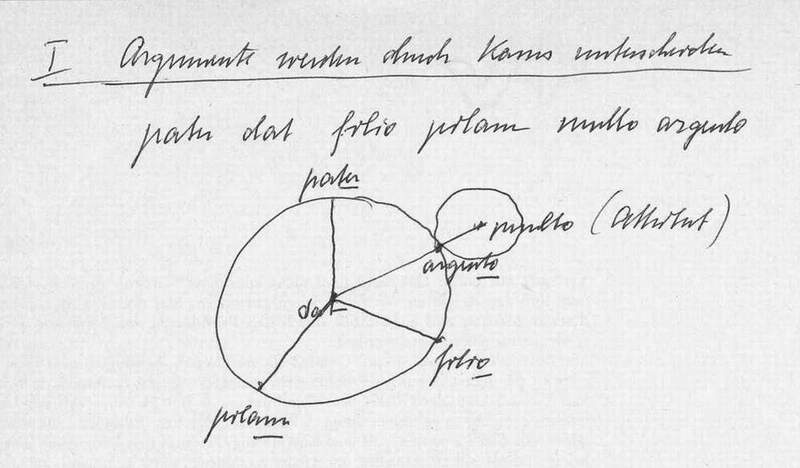 I Argumente werden durch Kasus unterschieden
pater dat filio pilam multo argento
pater
multo (Attribut)
argento
dat
filio
pilam